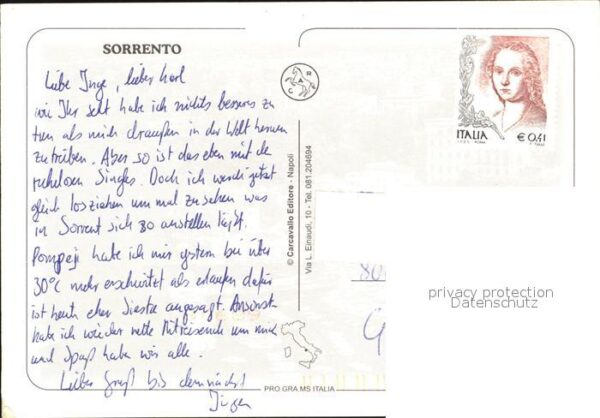 SORRENTO
Liebe Inge, lieber Karl
wie Ihr seht habe ich nichts besseres zu
tun als mich draußen in der Welt herum
zutreiben. Aber so ist das eben mit de
ruhelosen Singles. Doch ich werde jetzt
gleich losziehen um mal zu sehen was
in Sorrent sich so anstellen läßt.
Pompeji habe ich mir gestern bei über
30°C mehr erschwitzt als erlaufen dafür
ist heute eher Siesta angesagt. Ansonst
habe ich wieder nette Mitreisende um mich
und Spaß haben wir alle.
Lieber Gruß bis demnächst
Jürgen
CAR
© Carcavallo Editore - Napoli
Via L. Einaudi, 10 - Tel. 081.204694
PRO GRA MS ITALIA
ITALIA
€ 0,41
80
privacy protection
Datenschutz